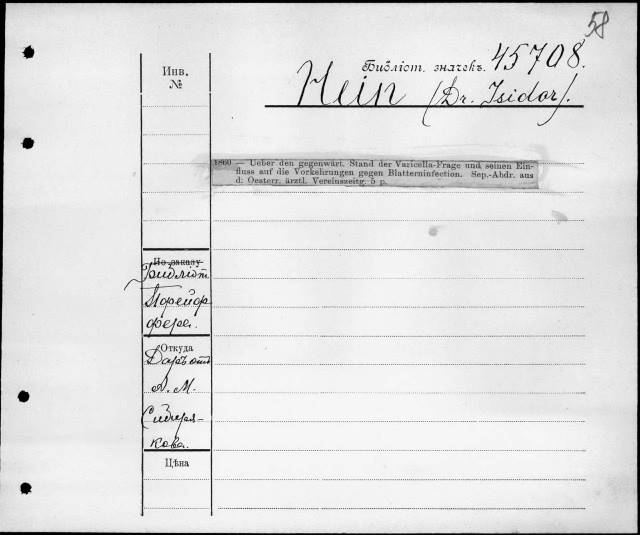 58
Библіот. значекъ. 45708.
Инв.
№
Hein (Dr. Isidor).
1860 — Ueber den gegenwärt. Stand der Varicella-Frage und seinen Ein-
fluss auf die Vorkehrungen gegen Blatterninfection. Sep.-Abdr. aus
d: Oesterr. ärztl. Vereinszeitg. 5 p.
По заказу
Библіот.
Пфейф
фера.
Откуда
Даръ отъ
А. М.
Сибиря-
кова.
Цѣна